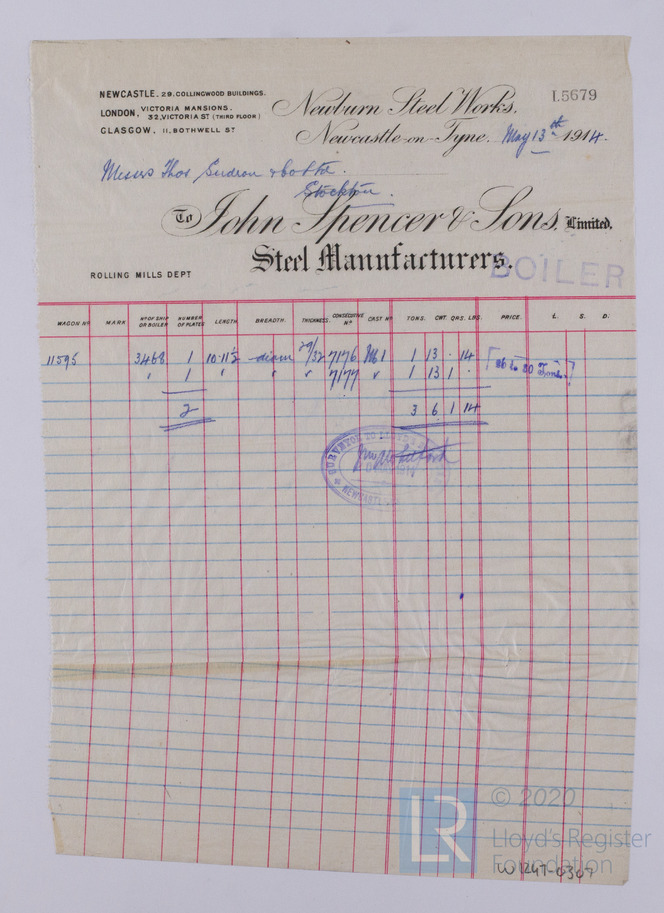 NEWCASTLE. 29. COLLINGWOOD BUILDINGS.
LONDON, VICTORIA MANSIONS.
32, VICTORIA ST (THIRD FLOOR)
GLASGOW, 11, BOTHWELL ST
Newburn Steel Works,
L5679
Newcastle-on-Tyne. May 13th 1914.
Messrs Thos
Stockton.
To John Spencer & Sons, Limited,
Steel Manufacturers.
BOILER
ROLLING MILLS DEPT
WAGON No MARK No OF SHIP OR BOILER NUMBER OF PLATES LENGTH BREADTH. THICKNESS. CONSECUTIVE No CAST No TONS. CWT. QRS. LBS. PRICE. £. S. D.
11595 3468 1 10.11½ diam 29/32 7176 1 13 . 14
" 1 " " " 7177 " 1 13 1 .
26 to 30 Tons.
2 3 6 1 14
SURVEYOR TO LLOYD'S
NEWCASTLE
© 2020
LR
Lloyd's Register
Foundation
W1247-0307